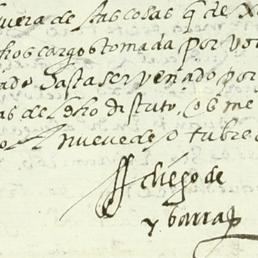 fuera de las cosas q de
hos cargos tomada por vos
ado hasta ser venido por
as de
nueve de otubre
diego de
ybarra